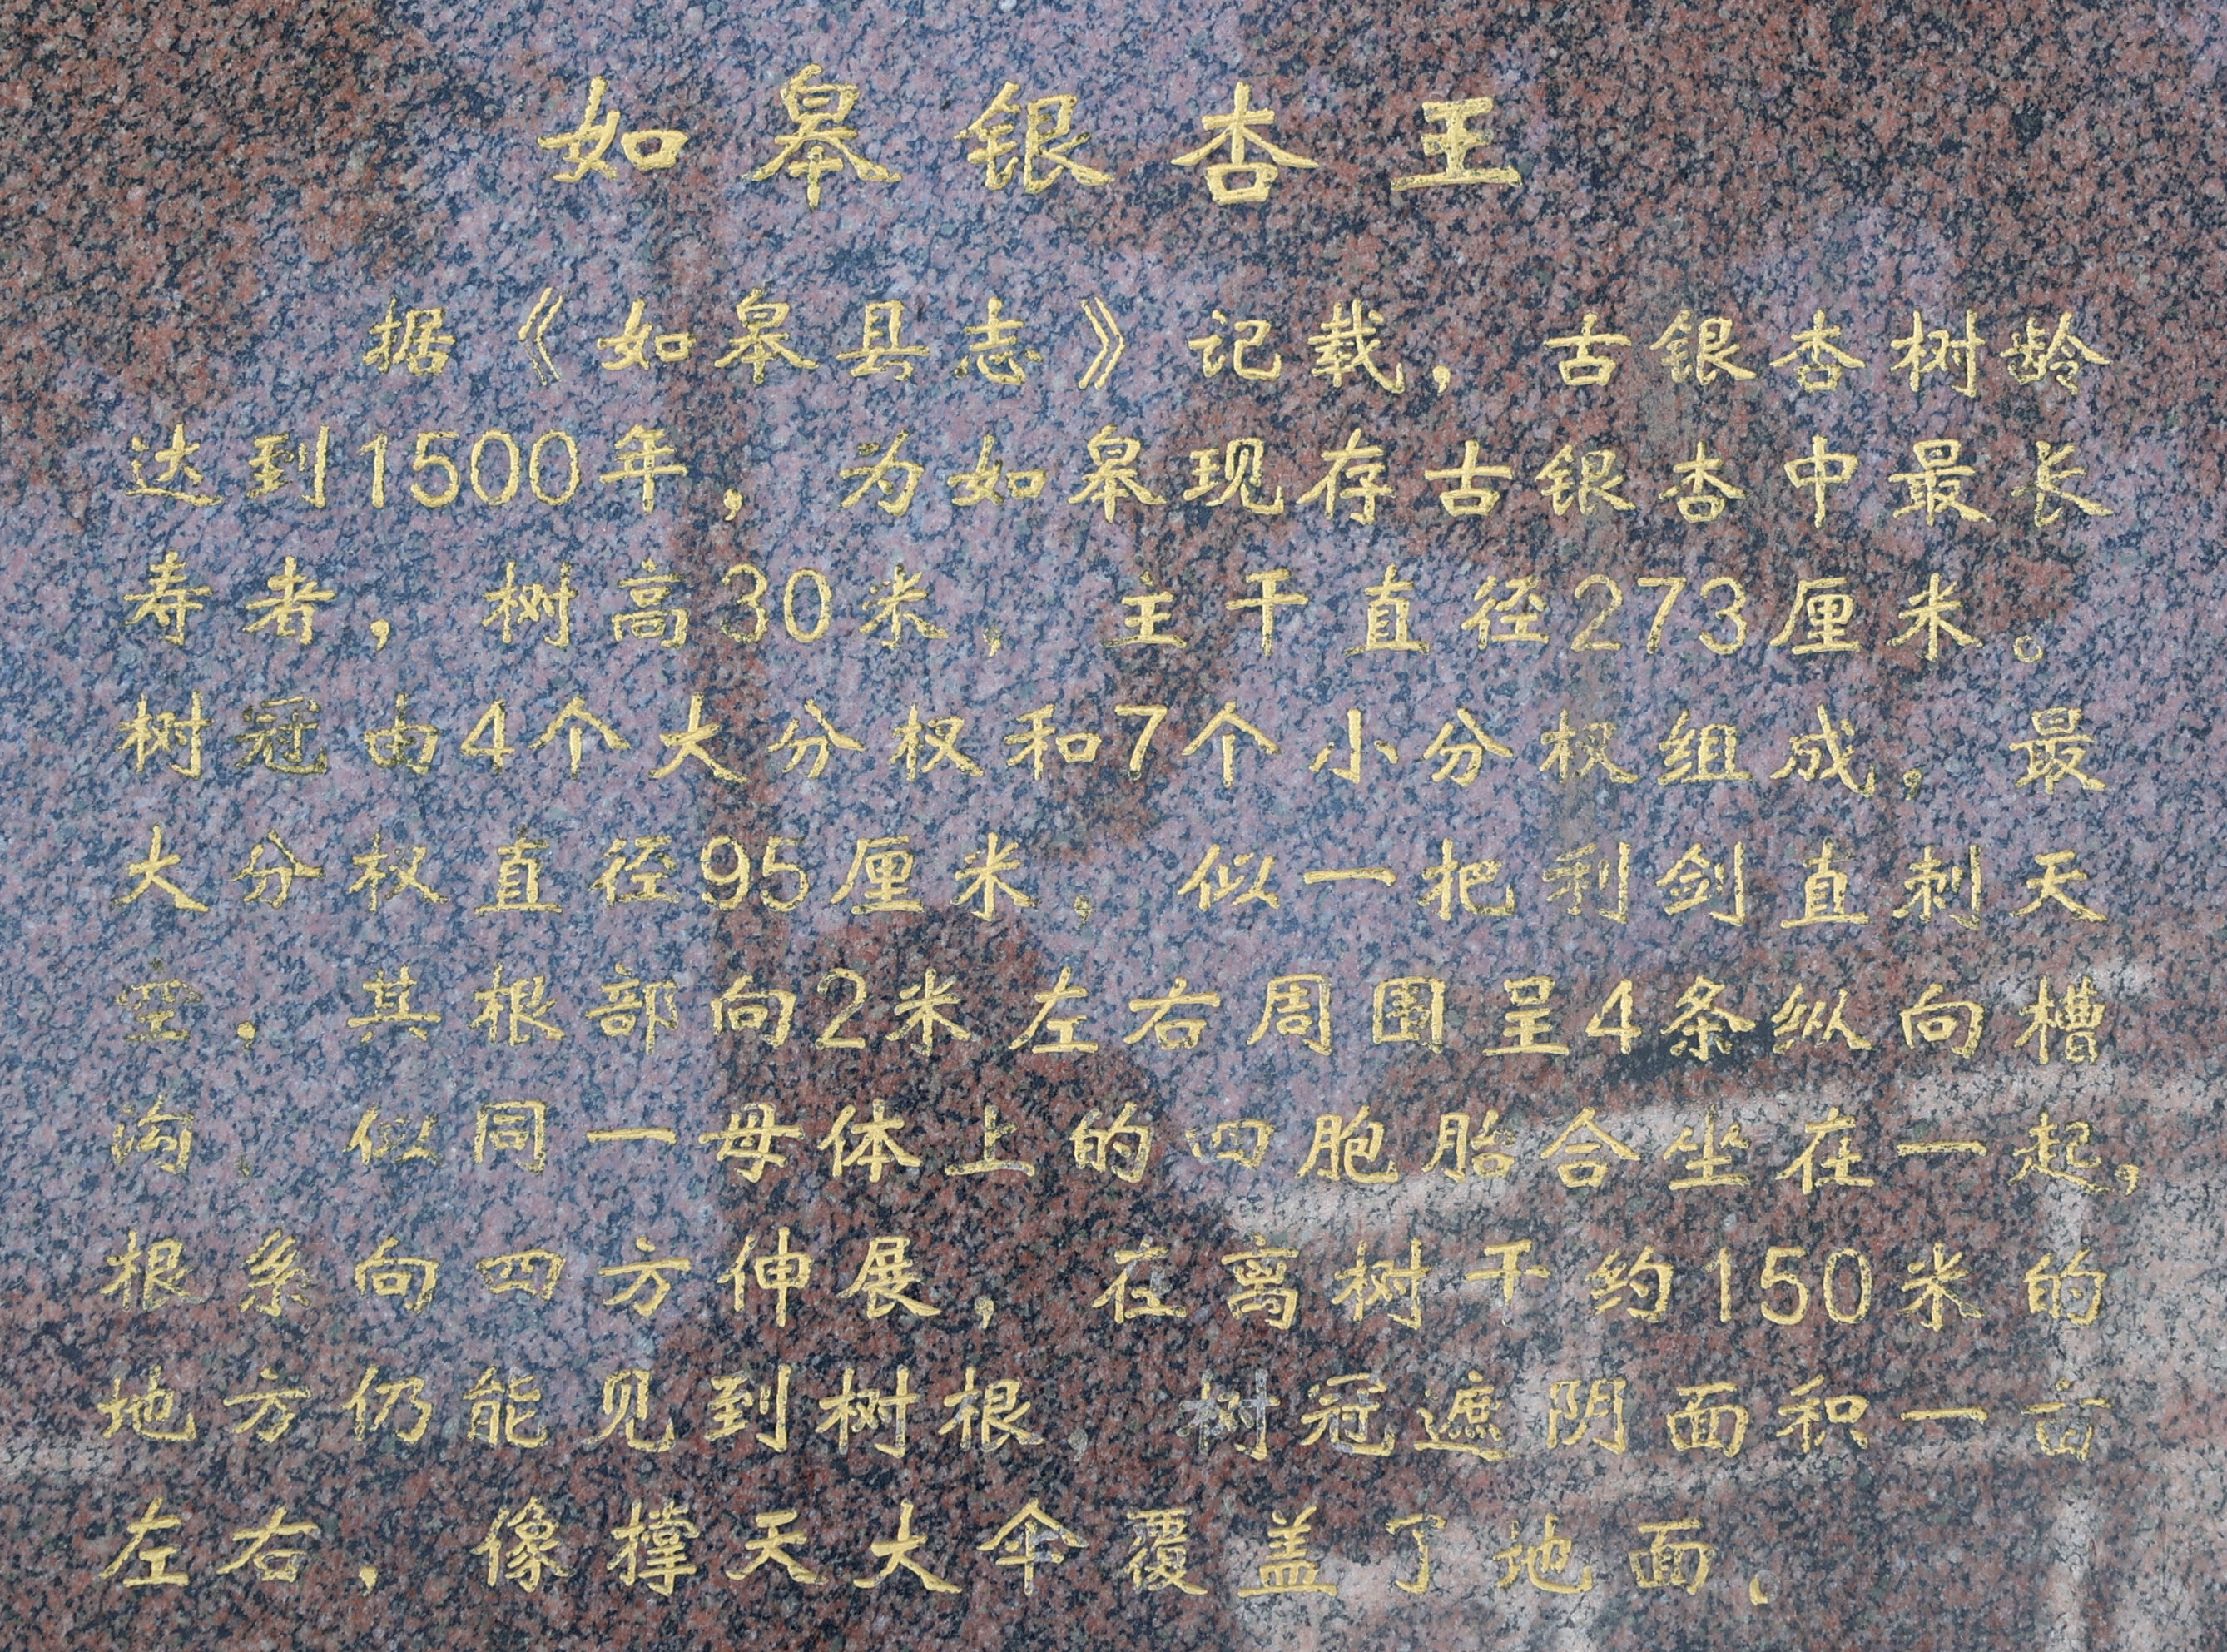 如皋银杏王
据《如皋县志》记载，古银杏树龄
达到1500年，为如皋现存古银杏中最长
寿者，树高30米，主干直径273厘米。
树冠由4个大分杈和7个小分杈组成，最
大分杈直径95厘米，似一把利剑直刺天
空．其根部向2米左右周围呈4条纵向槽
沟．似同一母体上的四胞胎合坐在一起，
根系向四方伸展，在离树干约150米的
地方仍能见到树根，树冠遮阴面积一亩
左右，像撑天大伞覆盖了地面．